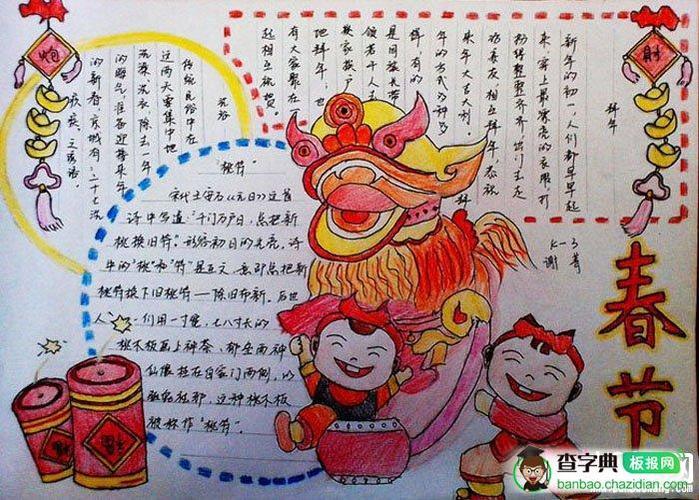 拜年
新年的初一,人们都早早起
来,穿上最漂亮的衣服,打
扮得整整齐齐,出门去走
亲访友,相互拜年,恭祝
来年大吉大利。拜
年的方式多种多
样,有的
是同族长带
领若干人挨
家挨户
地拜年;也
有大家聚在
起相互祝贺。
沐浴
传统民俗中在
这两天要集中地
洗澡、洗衣,除去一年
的晦气,准备迎接来年
的新春,京城有"二十七洗
"桃符"
宋代王安石《元日》这首
诗中写道:"千门万户日,总把新
桃换旧符"。形容初日的光亮。诗
中的"桃"和"符"是互文,意即总把新
桃符换下旧桃符—除旧布新。
人们用一寸宽,七八寸长的
桃木板画上神荼、郁垒两神
仙像挂在自家门两侧,以
驱鬼祛邪,这种桃木板
被称作"桃符"。
春节
查字典 板报网
banbao.chazidian.com